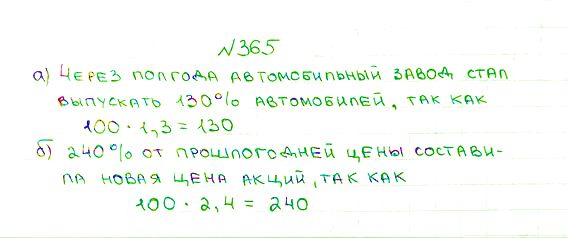 №365
а) Через полгода автомобильный завод стал
выпускать 130% автомобилей, так как
100 · 1,3 = 130
б) 240% от прошлогодней цены состави-
ла новая цена акций, так как
100 · 2,4 = 240